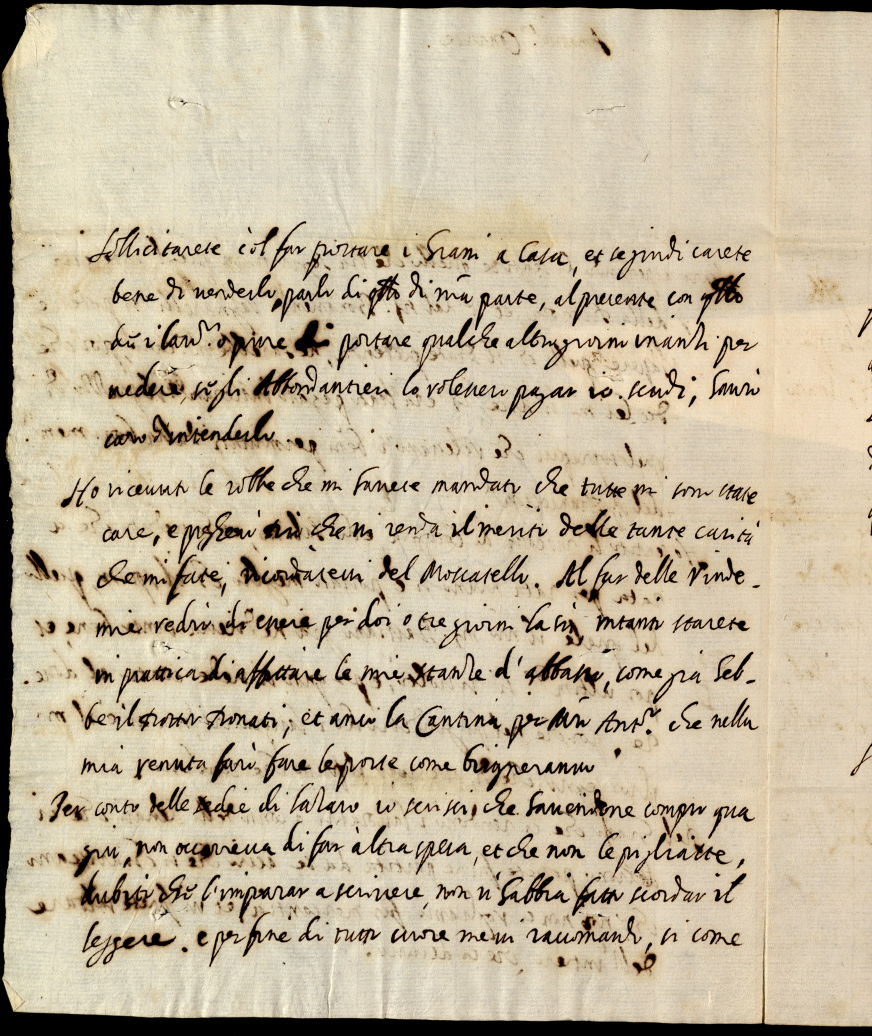 Sollicitarete il far portare i Grani a Casa, et se giudicarete
bene di venderli, di mia parte, al presente con
portare qualche altri giorni inanti per
vedere, se gli Abbondantieri lo volessero pagar 10. scudi, havrò
caro d'intenderlo
Ho ricevuti le robbe che mi havete mandati che tutte mi sono state
care, e pregherò che vi renda il merito delle tante carità
che mi fate, ricordatevi del Moscatello. Al far delle vinde-
mie vedrò di esere per doi o tre giorni la sù, intanto starete
in prattica di affittare le mie stanze d'abbasso, come già heb-
be il Donati, et anco la Cantina per Ant.º che nella
mia venuta farò fare le porte come bigneranno
Per conto delle sedie di io scrissi, che havendone compro qua
giù, non occorreva di far altra spesa, et che non le pigliaste,
dubito che l'imparar a scrivere, non vi habbia fatto scordar il
leggere. e per fine di tutto cuore me vi raccomando, si come